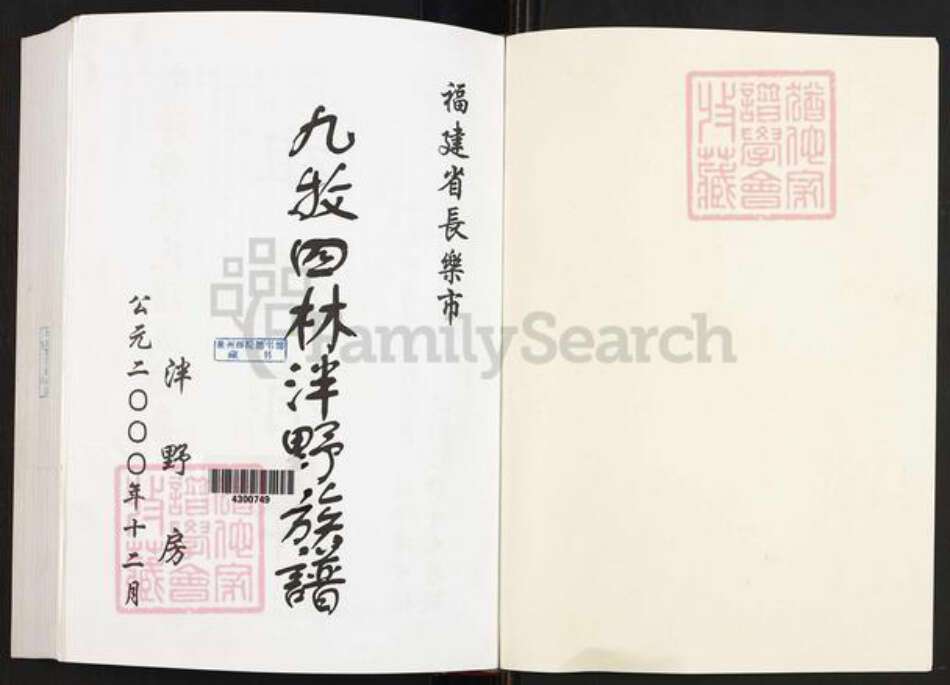 福建省長樂市
九牧四林泮野族譜
泮野房
公元二〇〇〇年十二月
4300749
藏书
FamilySearch
譜學會
收藏